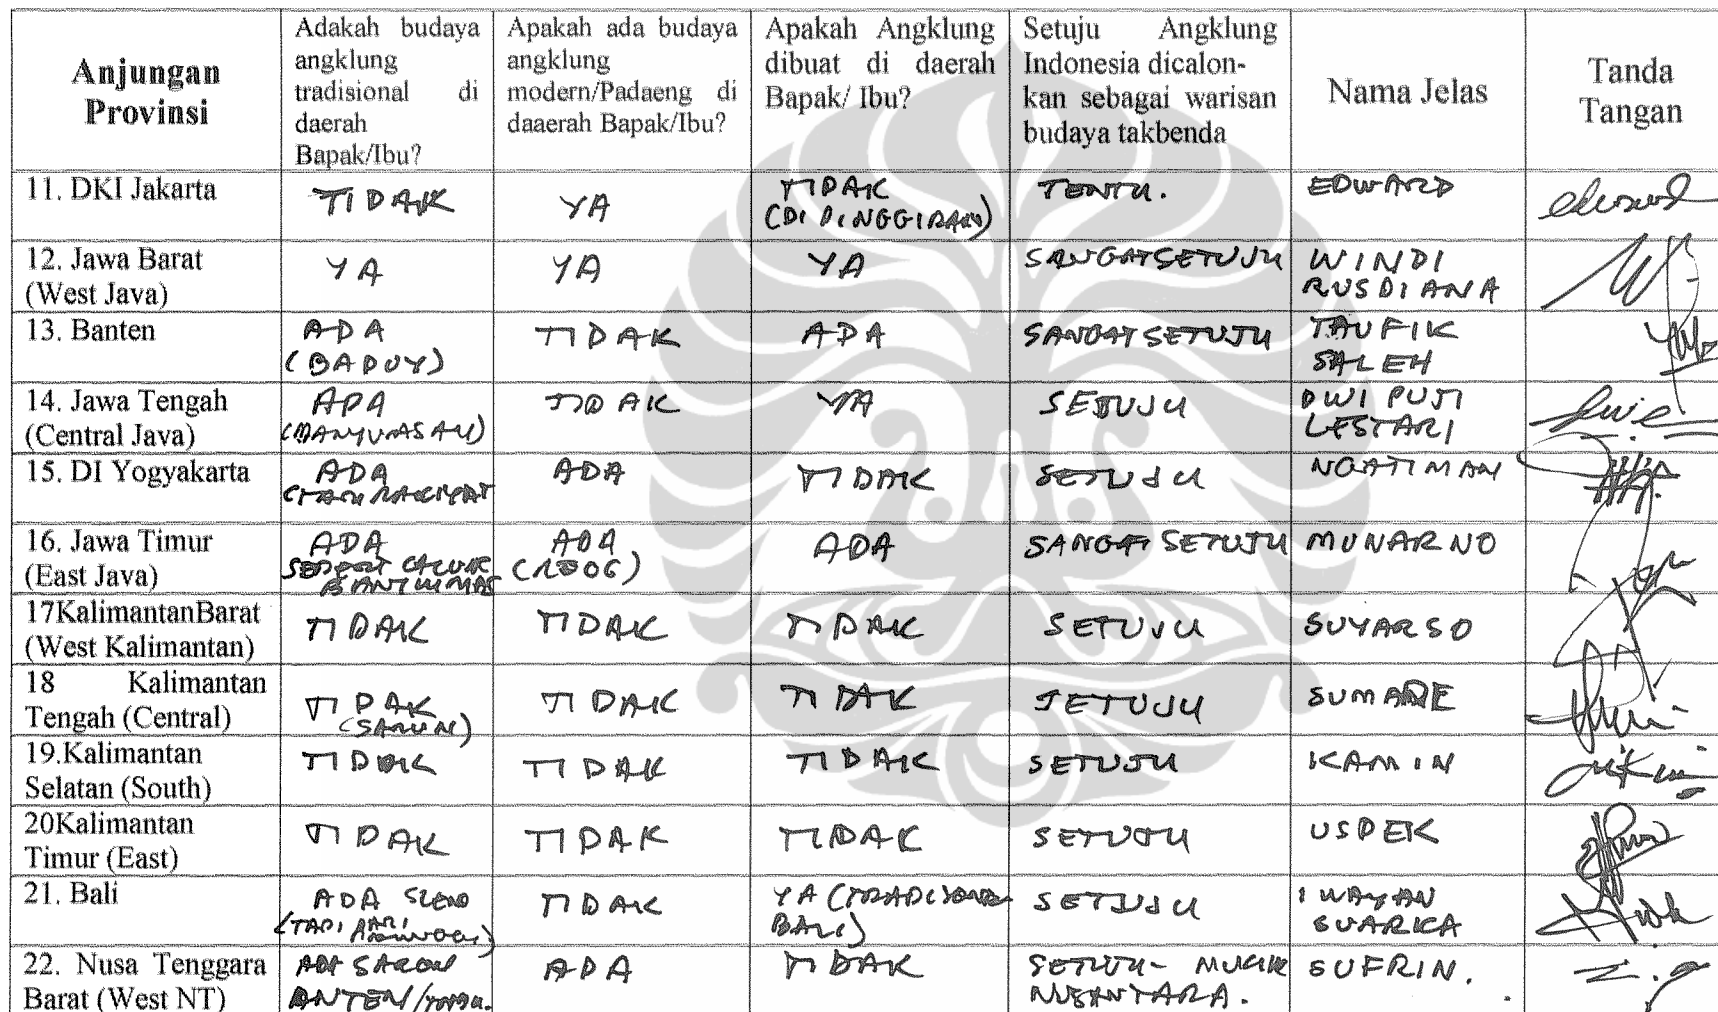 Anjungan Provinsi
Adakah budaya angklung tradisional di daerah Bapak/Ibu?
Apakah ada budaya angklung modern/Padaeng di daaerah Bapak/Ibu?
Apakah Angklung dibuat di daerah Bapak/ Ibu?
Setuju Angklung Indonesia dicalon-kan sebagai warisan budaya takbenda
Nama Jelas
Tanda Tangan
11. DKI Jakarta
TIDAK
YA
TIDAK
(DI
TENTU.
EDWARD
12. Jawa Barat
(West Java)
YA
YA
YA
SANGAT SETUJU
WINDI
RUSDIANA
13. Banten
ADA
(BADUY)
TIDAK
ADA
SANGAT SETUJU
TAUFIK
SALEH
14. Jawa Tengah
(Central Java)
ADA
(BANYUMASAN)
TIDAK
YA
SETUJU
DWI PUJI
LESTARI
15. DI Yogyakarta
ADA
ADA
TIDAK
SETUJU
NGATIMAN
16. Jawa Timur
(East Java)
ADA
SEPERTI CALUNG
ADA
(REOG)
ADA
SANGAT SETUJU
MUNARNO
17KalimantanBarat
(West Kalimantan)
TIDAK
TIDAK
TIDAK
SETUJU
SUYARSO
18 Kalimantan
Tengah (Central)
TIDAK
TIDAK
TIDAK
SETUJU
19.Kalimantan
Selatan (South)
TIDAK
TIDAK
TIDAK
SETUJU
KAMIN
20Kalimantan
Timur (East)
TIDAK
TIDAK
TIDAK
SETUJU
USDEK
21. Bali
ADA
TIDAK
YA (TRADISIONAL
BALI)
SETUJU
I WAYAN
SUARKA
22. Nusa Tenggara
Barat (West NT)
ADA
ADA
TIDAK
SETUJU- MUSIK
NUSANTARA.
SUFRIN.